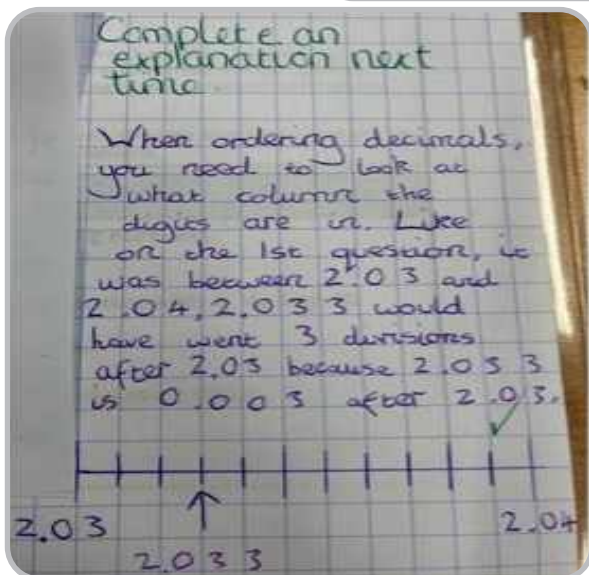 Complete an
explanation next
time.
When ordering decimals,
you need to look at
what column the
digits are in. Like
on the 1st question, it
was between 2.03 and
2.04, 2.033 would
have went 3 divisions
after 2.03 because 2.033
is 0.003 after 2.03.
2.03
2.04
2.033